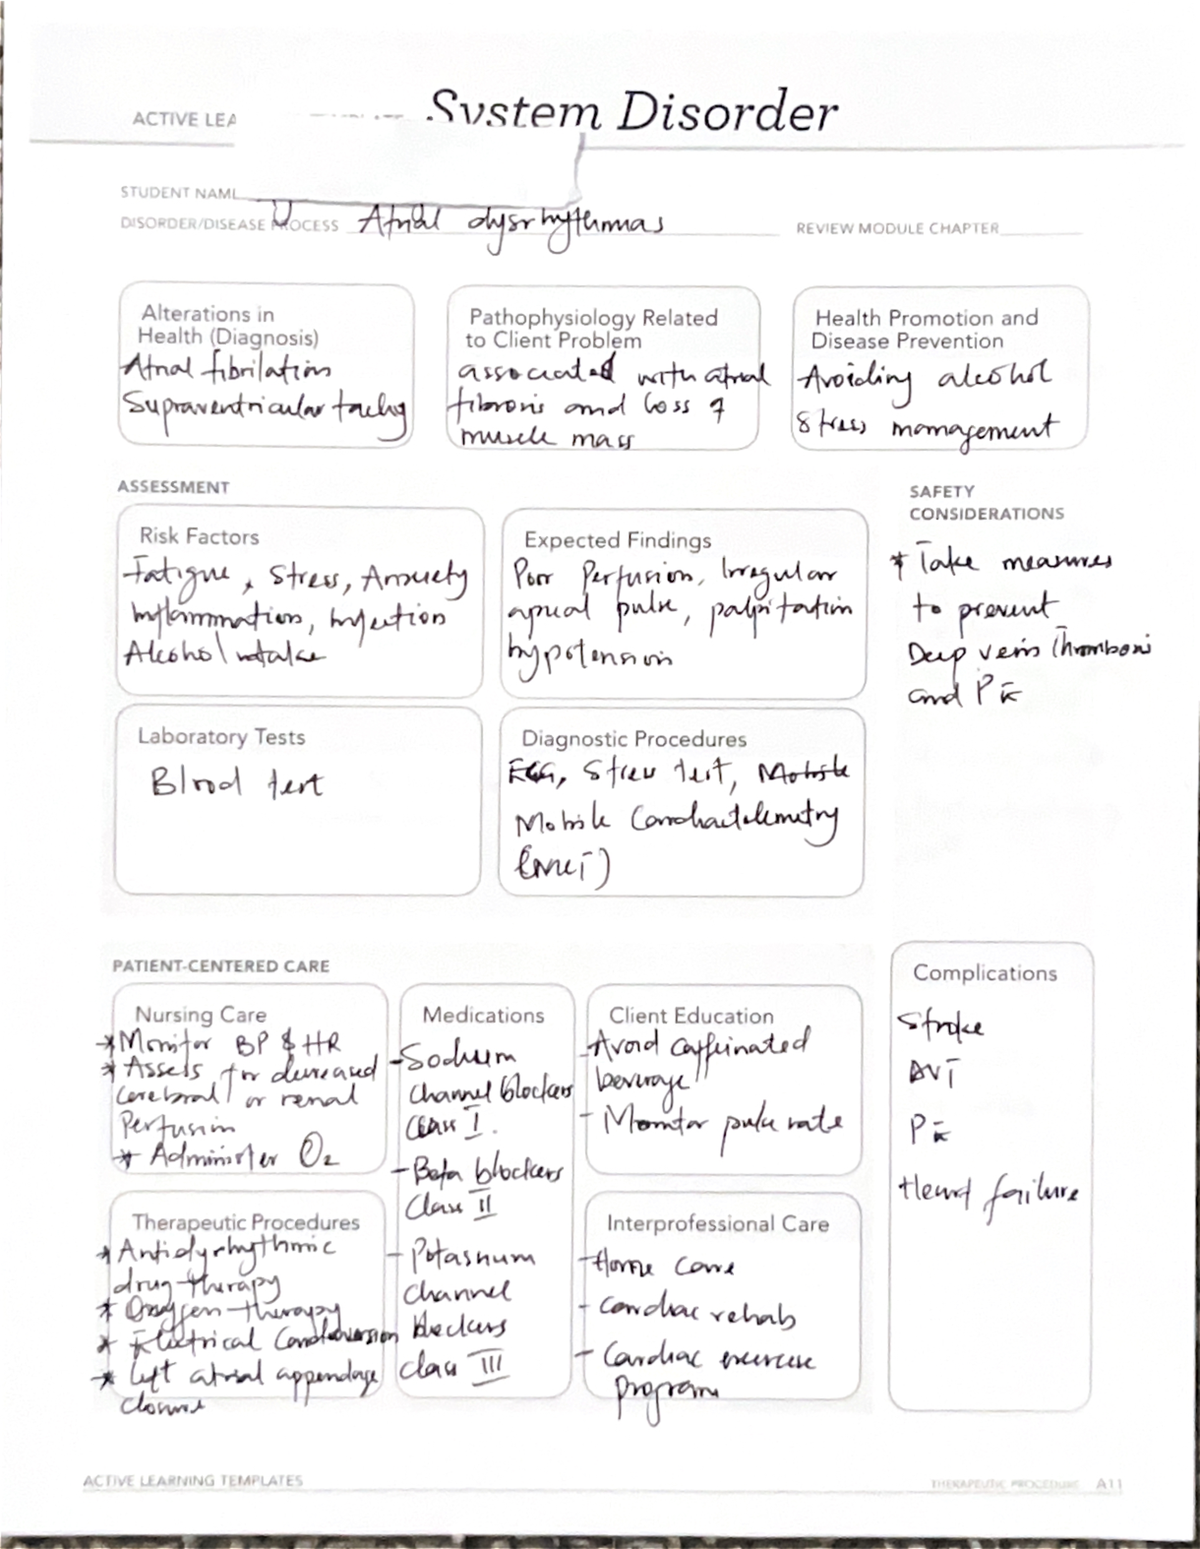 ACTIVE LEA
System Disorder
STUDENT NAM
DISORDER/DISEASE PROCESS Atrial dysrhythmias
REVIEW MODULE CHAPTER
Alterations in
Health (Diagnosis)
Atrial fibrilation
Supraventricular tachy
Pathophysiology Related
to Client Problem
associated with atrial
fibrosis and loss of
muscle mass
Health Promotion and
Disease Prevention
Avoiding alcohol
Stress management
ASSESSMENT
Risk Factors
Fatigue, Stress, Anxiety
Inflammation, Infection
Alcohol intake
Expected Findings
Poor Perfusion, Irregular
apical pulse, palpitation
hypotension
SAFETY
CONSIDERATIONS
* Take measures
to prevent
Deep vein thrombosis
and PE
Laboratory Tests
Blood test
Diagnostic Procedures
ECG, Stress test, Mobile
Mobile Cardiac telemetry
(MCT)
PATIENT-CENTERED CARE
Nursing Care
* Monitor BP & HR
* Assess for decreased
cerebral or renal
Perfusion
* Administer O2
Medications
- Sodium
channel blockers
Class I.
- Beta blockers
Class II
- Potassium
channel
blockers
Class III
Client Education
- Avoid caffeinated
beverage
- Monitor pulse rate
Complications
Stroke
DVT
PE
Heart failure
Therapeutic Procedures
* Antidyrhythmic
drug therapy
* Oxygen therapy
* Electrical Cardioversion
* Left atrial appendage
closure
Interprofessional Care
- Home care
- Cardiac rehab
- Cardiac exercise
program
ACTIVE LEARNING TEMPLATES
THERAPEUTIC PROCEDURE A11